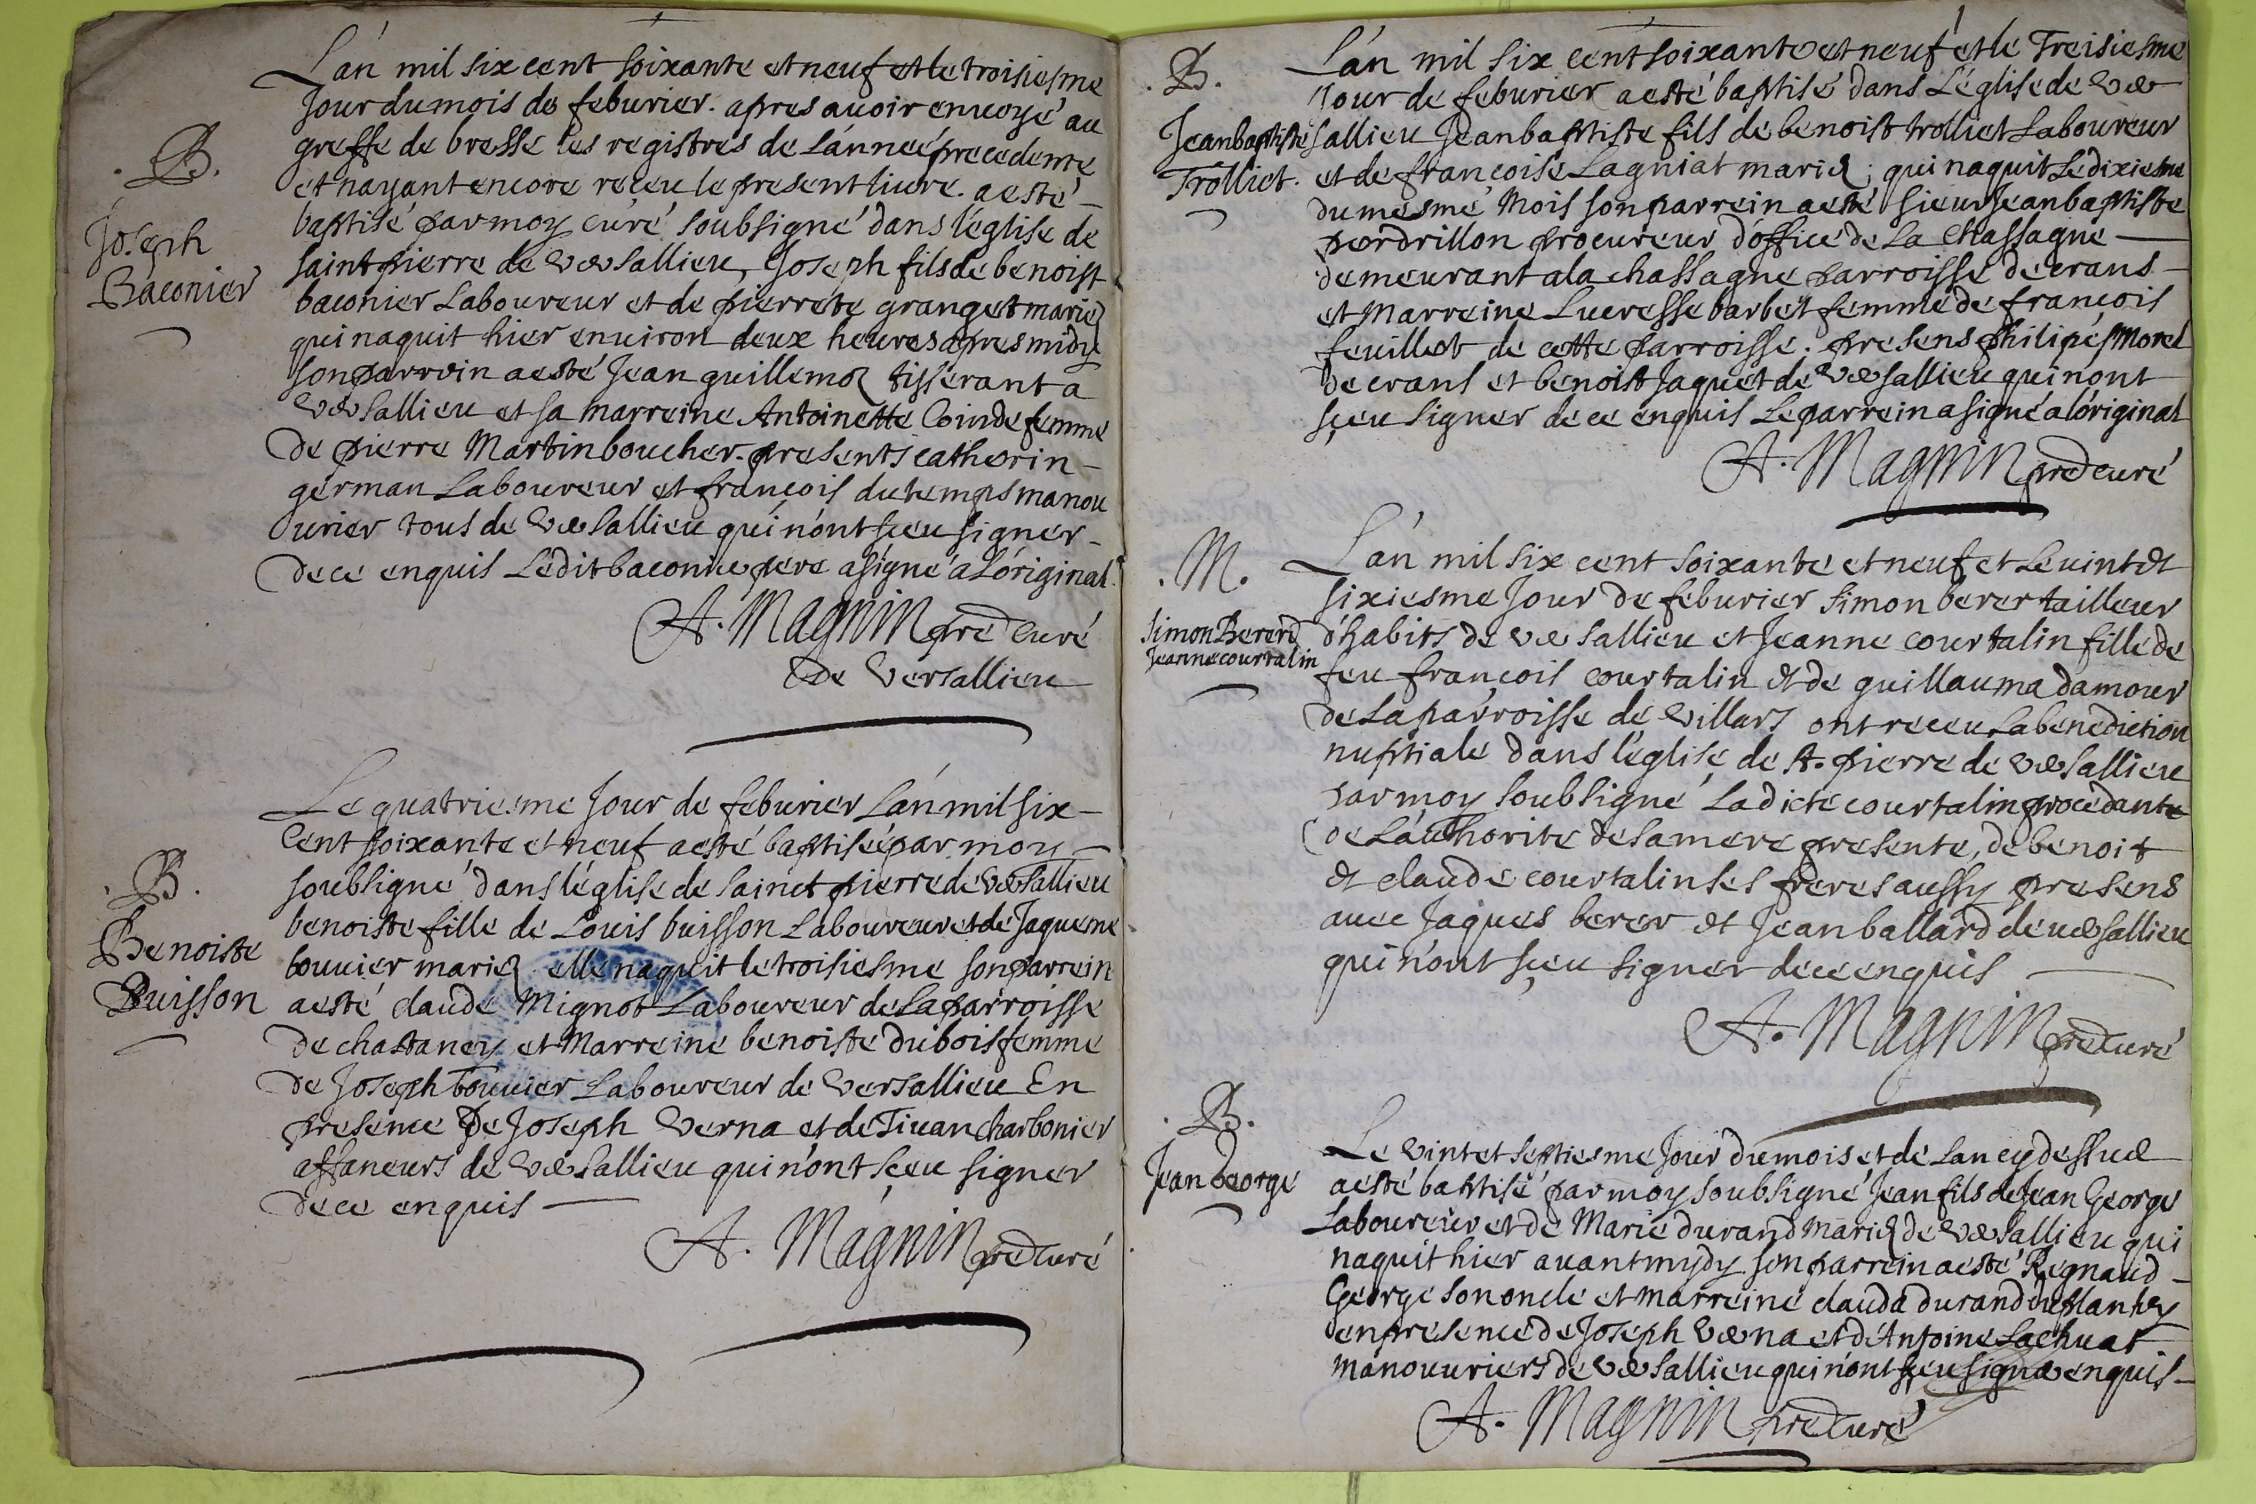 L'an mil six cent soixante et neuf et le troisiesme
Jour du mois de feburier. apres auoir enuoyé au
greffe de bresse les registres de l'anneé precedente
et nayant encore reçeu le present liure. a esté
.B.
baptisé par moy curé soubsigné dans l'église de
Joseph
Baconier
saint pierre de versallieu, Joseph fils de benoist
baconier Laboureur et de pierrete granget mariez
qui naquit hier enuiron deux heures apres midy
son parrein a esté Jean guillemoz tisserant a
versallieu et sa marreine Antoinette Coinde femme
de pierre Martin boucher. presents catherin -
german Laboureur et françois du temps manou
urier tous de versallieu qui n'ont sçeu signer -
de ce enquis Ledit baconier pere a signé a L'original.
A. Magnin pre curé
de versallieu
Le quatriesme Jour de feburier L'an mil six -
Cent soixante et neuf a esté baptiseé par moy -
.B.
Benoiste
Buisson
soubsigné dans l'église de sainct pierre de versallieu
benoiste fille de Louis buisson Laboureur et de Jaqueme
bouuier mariez elle naquit le troisiesme son parrein
a esté claude Mignot Laboureur de La parroisse
de chastaney et Marreine benoiste dubois femme
de Joseph bouuier Laboureur de versallieu En
presence de Joseph verna et de Tiuan charbonier
affaneurs de versallieu qui n'ont sçeu signer
de ce enquis
A. Magnin pre curé
.B.
Jean baptiste
Trolliet.
L'an mil six cent soixante et neuf et le Treisiesme
Jour de feburier a esté baptisé dans L'église de ver
sallieu Jean baptiste fils de benoist trolliet Laboureur
et de françoise Lagniat mariez; qui naquit Le dixiesme
du mesme Mois son parrein a esté sieur Jean baptiste
perdrillon procureur d'office de La Chassagne
demeurant a la chassagne parroisse de crans -
et Marreine Lucresse barbet femme de françois
feuillet de cette parroisse. presens philipes Morel
de crans et benoist Jaquet de versallieu qui n'ont
sçeu signer de ce enquis Le parrein a signé a l'original
A. Magnin pre curé
.M.
Simon Bererd
Jeanne courtalin
L'an mil six cent soixante et neuf et Le uint et
sixiesme Jour de feburier Simon berer tailleur
d'habits de versallieu et Jeanne courtalin fille de
feu françois courtalin et de guillauma damour
de La parroisse de villars ont reçeu La benediction
nuptiale dans l'église de st. pierre de versallieu
par moy soubsigné Ladicte courtalin procedante
de L'authorite de sa mere presente, de benoit
et claude courtalin ses freres aussy presens
auec Jaques berer et Jean ballard de uersallieu
qui n'ont sçeu signer de ce enquis
A. Magnin pre curé
.B.
Jean George
Le vint et septiesme Jour du mois et de Lan cy dessus
a esté baptisé par moy soubsigné Jean fils de Jean George
Laboureur et de Marie durand mariez de versallieu qui
naquit hier auant mydy son parrein a esté Regnaud -
George son oncle et marreine clauda durand du plantey
en presence de Joseph verna et d'Antoine Lachuat
manouuriers de versallieu qui n'ont sçeu signer enquis -
A. Magnin pre curé